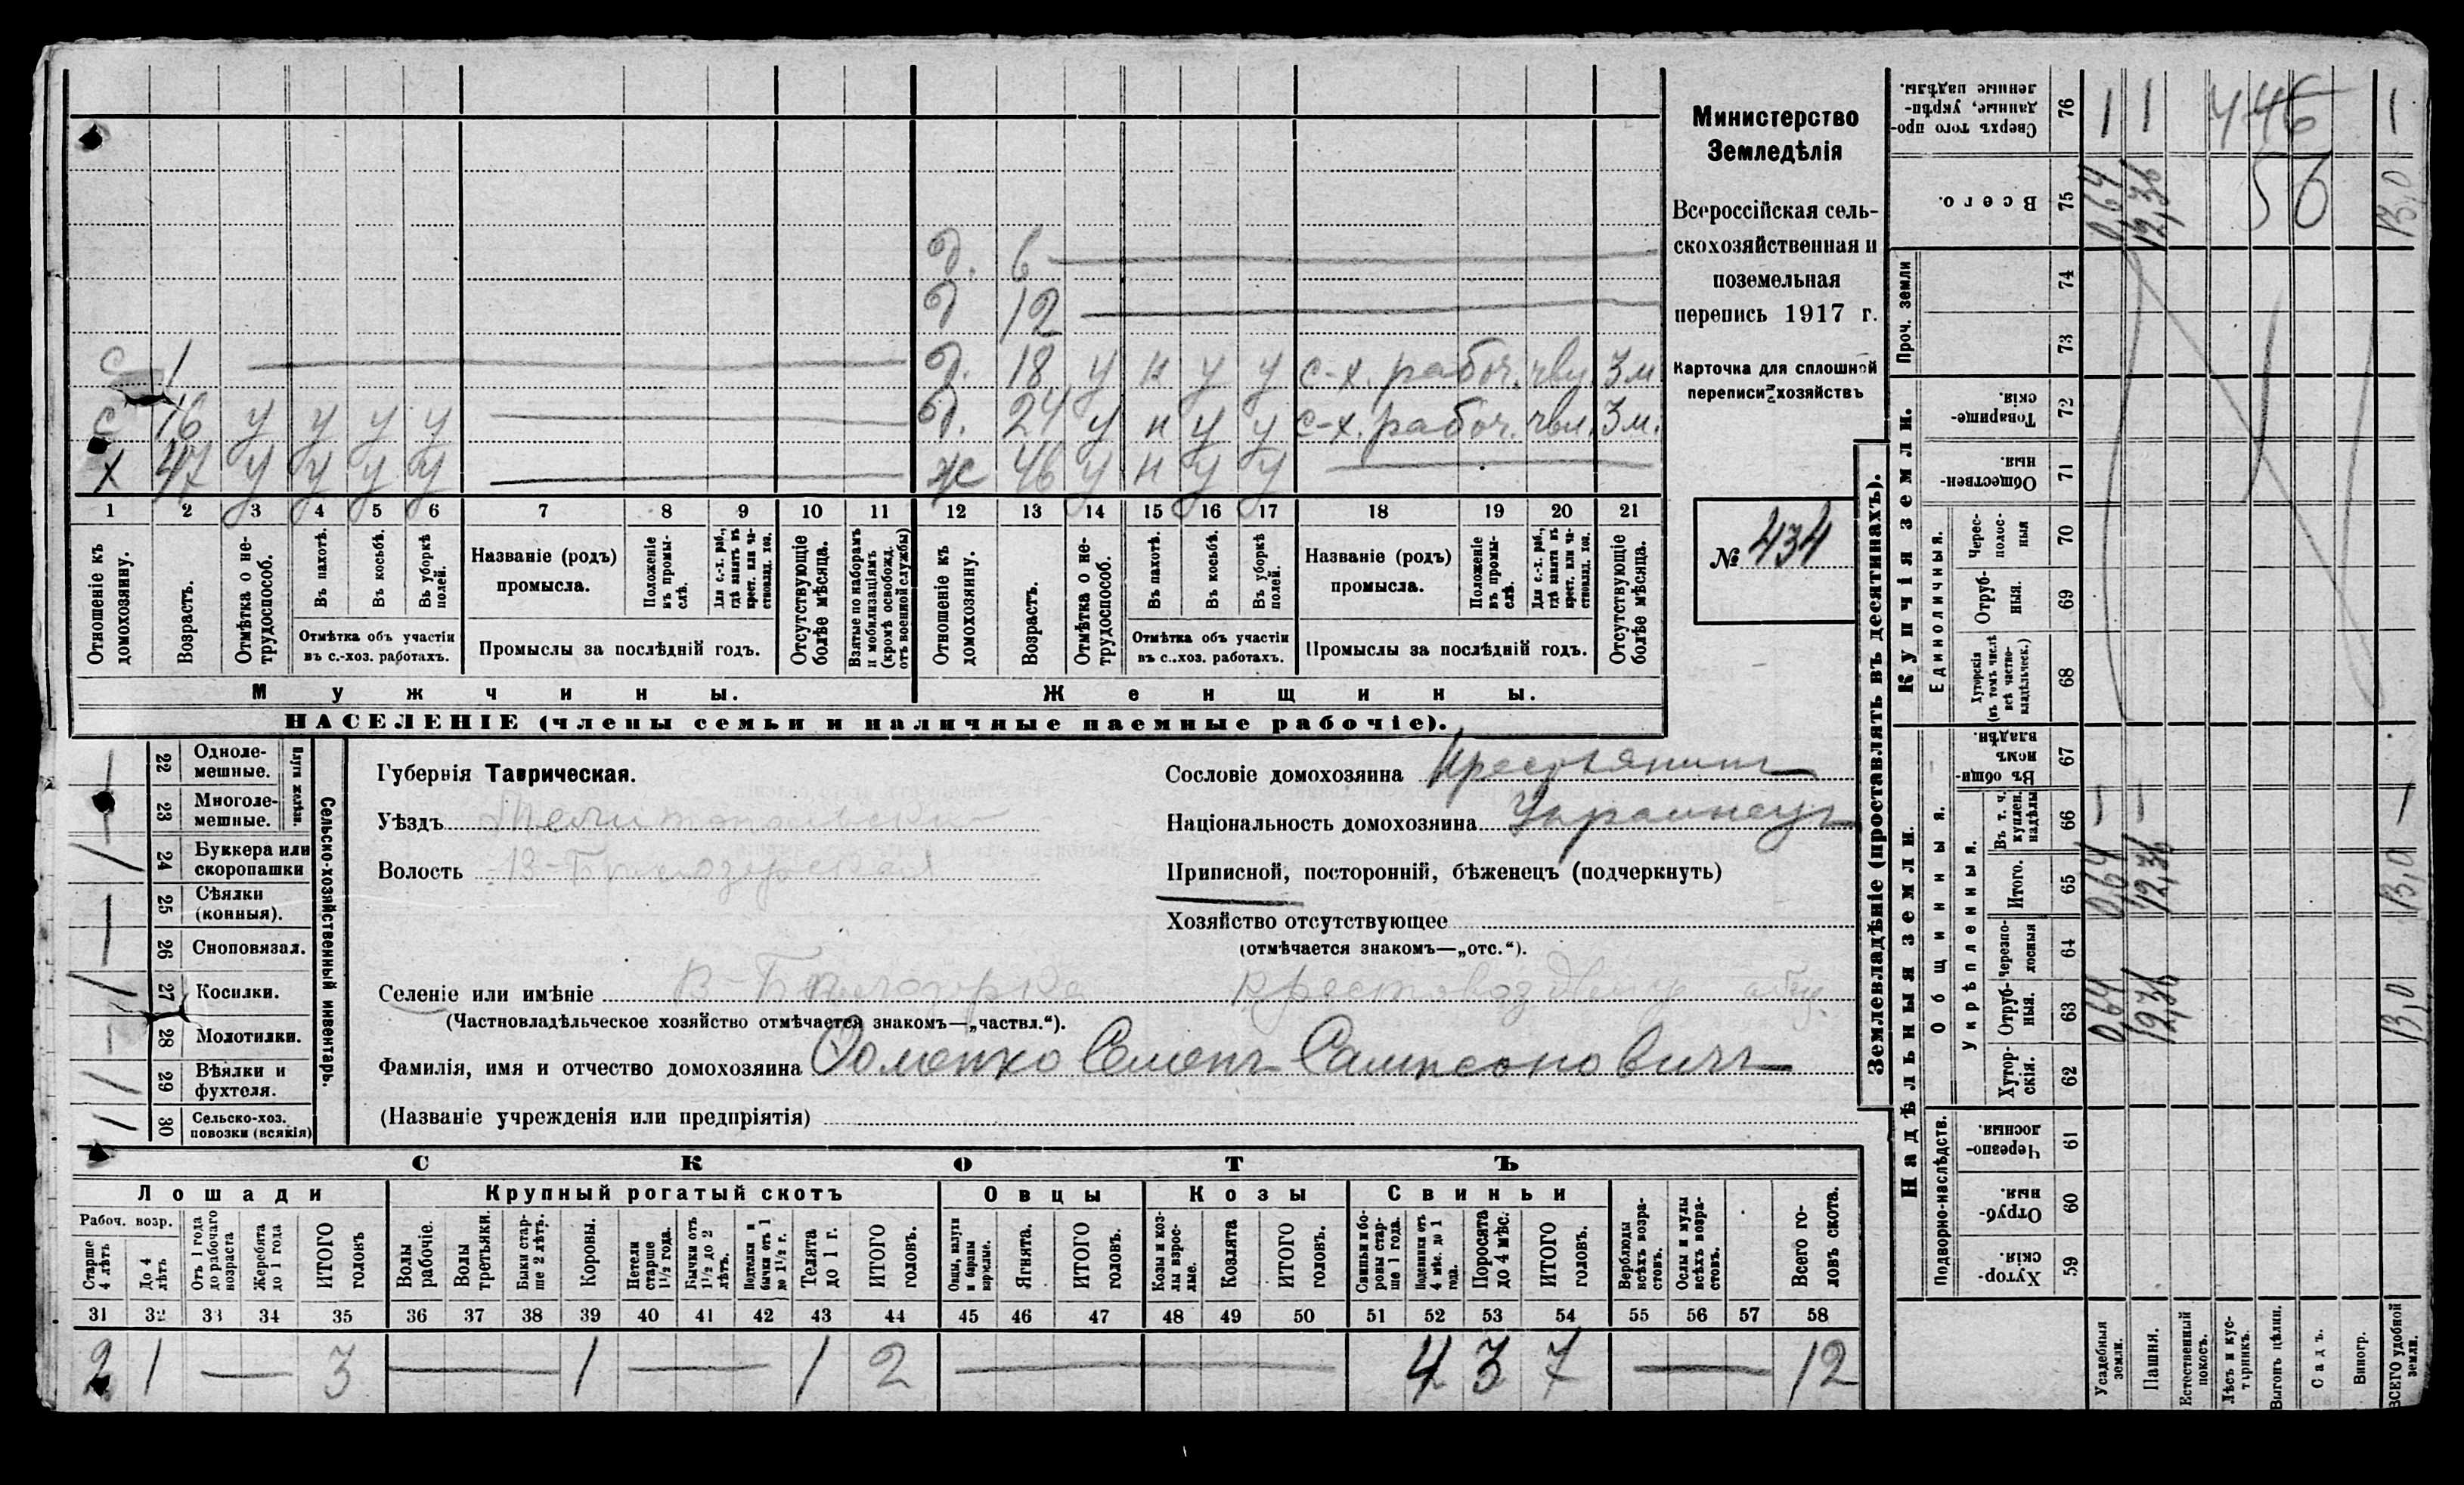 д. 6
д 12
с 1 д. 18 у н у у с-х. рабоч. 3 м
с 16 у у у у д. 24 у н у у с-х. рабоч. чвл. 3 м.
х 47 у у у у ж 46 у н у у
1 2 3 4 5 6 7 8 9 10 11 12 13 14 15 16 17 18 19 20 21
Отношеніе къ домохозяину.
Возрастъ.
Отмѣтка о не-
трудоспособ.
Въ пахотѣ.
Въ косьбѣ.
Въ уборкѣ
полей.
Отмѣтка объ участіи
въ с.-хоз. работахъ.
Названіе (родъ)
промысла.
Положеніе
въ промы-
слѣ.
Для с.-х. раб.,
гдѣ занятъ въ
крест. или ча-
стновлад. хоз.
Промыслы за послѣдній годъ.
Отсутствующіе
болѣе мѣсяца.
Взятые по наборамъ
и мобилизаціямъ
(кромѣ освобожд.
отъ военной службы)
Отношеніе къ
домохозяину.
Возрастъ.
Отмѣтка о не-
трудоспособ.
Въ пахотѣ.
Въ косьбѣ.
Въ уборкѣ
полей.
Отмѣтка объ участіи
въ с.-хоз. работахъ.
Названіе (родъ)
промысла.
Положеніе
въ промы-
слѣ.
Для с.-х. раб.,
гдѣ занята въ
крест. или ча-
стновлад. хоз.
Промыслы за послѣдній годъ.
Отсутствующіе
болѣе мѣсяца.
Мужчины. Женщины.
НАСЕЛЕНІЕ (члены семьи и наличные наемные рабочіе).
Министерство
Земледѣлія
Всероссійская сель-
скохозяйственная и
поземельная
перепись 1917 г.
Карточка для сплошной
переписи хозяйствъ
№ 434
22 Одноле-
мешные.
23 Многоле-
мешные.
Плуги желѣзн.
24 Буккера или
скоропашки
25 Сѣялки
(конныя).
26 Сноповязал.
27 Косилки.
28 Молотилки.
29 Вѣялки и
фухтеля.
30 Сельско-хоз.
повозки (всякія)
Сельско-хозяйственный инвентарь.
Губернія Таврическая.
Уѣздъ Мелитопольскій
Волость В-Бѣлозерская
Сословіе домохозяина Крестьянинъ
Національность домохозяина Украинецъ
Приписной, посторонній, бѣженецъ (подчеркнуть)
Хозяйство отсутствующее
(отмѣчается знакомъ—„отс.“).
Селеніе или имѣніе В-Бѣлозерка
(Частновладѣльческое хозяйство отмѣчается знакомъ—„частвл.“).
Фамилія, имя и отчество домохозяина Семенъ Сампсоновичъ
(Названіе учрежденія или предпріятія)
СКОТЪ
Лошади Крупный рогатый скотъ Овцы Козы Свиньи
Рабоч. возр.
Старше
4 лѣтъ
До 4
лѣтъ
Отъ 1 года
до рабочаго
возраста
Жеребята
до 1 года
ИТОГО
головъ
Волы
рабочіе.
Волы
третьяки.
Быки стар-
ше 2 лѣтъ.
Коровы.
Нетели
старше
1½ года.
Бычки отъ
1½ до 2
лѣтъ.
Подтелки и
бычки отъ 1
до 1½ г.
Телята
до 1 г.
ИТОГО
головъ.
Овцы, валухи
и бараны
взрослые.
Ягнята.
ИТОГО
головъ.
Козы и коз-
лы взрос-
лые.
Козлята
ИТОГО
головъ.
Свиньи и бо-
ровы стар-
ше 1 года.
Подсвинки отъ
4 мѣс. до 1
года.
Поросята
до 4 мѣс.
ИТОГО
головъ.
Верблюды
всѣхъ возра-
стовъ.
Ослы и мулы
всѣхъ возра-
стовъ.
Всего го-
ловъ скота.
31 32 33 34 35 36 37 38 39 40 41 42 43 44 45 46 47 48 49 50 51 52 53 54 55 56 57 58
2 1 — 3 — 1 — 1 2 — 4 3 7 — 12
Землевладѣніе (проставлять въ десятинахъ).
Сверхъ того про-
данные, укрѣп-
ленные надѣлы.
76
Всего.
75
0,64 12,36 56 13,0
Проч. земли
74
73
Купчія земли.
Товарище-
скія.
72
Обществен-
ныя.
71
Единоличныя.
Черес-
полос-
ныя
70
Отруб-
ныя.
69
Хуторскія
(въ томъ числѣ
всѣ частно-
владѣльческ.)
68
Надѣльныя земли.
Общинныя.
Въ общин-
номъ
владѣн.
67
Укрѣпленныя.
Въ т. ч.
куплен.
надѣлы
66
Итого.
65
0,64 12,36 13,0
Черезпо-
лосныя
64
Отруб-
ныя.
63
0,64 12,36 13,0
Хутор-
скія.
62
Подворно-наслѣдств.
Черезпо-
лосныя.
61
Отруб-
ныя.
60
Хутор-
скія.
59
Усадебныя
земли.
Пашня.
Естественный
покосъ.
Лѣсъ и кус-
тарникъ.
Выгонъ цѣлин.
Садъ.
Виногр.
ВСЕГО удобной
земли.